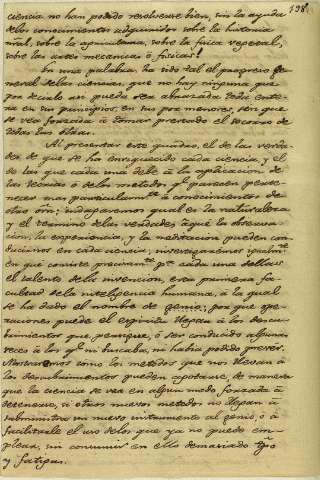 198.
ciencia no han podido resolverse bien, sin la ayuda
delos conocimientos adquiridos sobre la historia
nral, sobre la agricultura, sobre la fisica vegetal,
sobre las artes mecanicas ó fisicas.
En una palabra, ha sido tal el progreso ge-
neral delas ciencias, que no hay ninguna que
por decirlo asi pueda ser abrazada toda ente-
ra en sus principios, en sus por menores, sin que
se vea forzada á tomar prestado el socorro de
todas las otras.
Al presentar este quadro, el de las verda-
des de que se ha enriquecido cada ciencia, y el
de las que cada una debe á la aplicacion de
las teorias ó delos metodos qe parecen perte-
necer mas particularmte á conocimientos de
otro orn; indagaremos qual es la naturaleza
y el termino delas verdades aque la observa-
cion, la experiencia, y la meditacion pueden con-
ducirnos en cada ciencia; investigaremos igualmte
en que consiste precisamte pa cada una dellas
el talento dela invencion, esta primera fa-
cultad dela inteligencia humana, á la qual
se ha dado el nombre de genio; por que ope-
raciones puede el espiritu llegar á los descu-
brimientos que persigue, ó ser conducido algunas
veces á los qe ni buscaba, ni habia podido prever.
Mostraremos como los metodos que nos llevan á
los descubrimientos pueden agotarse, de manera
que la ciencia se vea en algun modo forzada á
detenerse, si otros nuevos metodos no llegan á
subministrar un nuevo instrumento al genio, ó á
facilitarle el uso delos que ya no puede em-
plear, sin consumir en ello demasiado tpo
y fatigas.